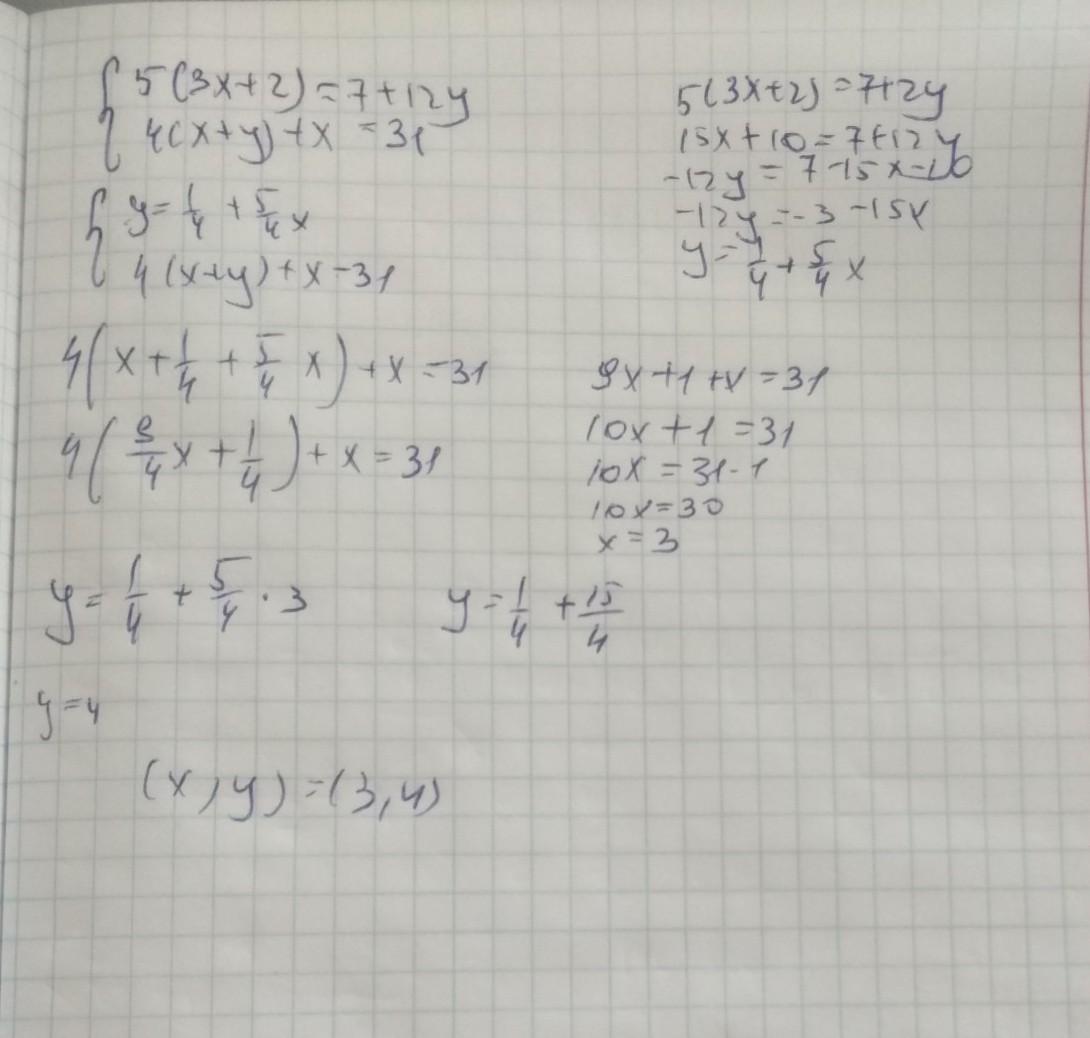 5(3x+2)=7+12y
4(x+y)+x=31
5(3x+2)=7+2y
15x+10=7+12y
-12y=7-15x-10
-12y=-3-15x
y=1/4+5/4x
y=1/4+5/4x
4(x+y)+x=31
4(x+1/4+5/4x)+x=31
4(9/4x+1/4)+x=31
9x+1+x=31
10x+1=31
10x=31-1
10x=30
x=3
y=1/4+5/4·3
y=1/4+15/4
y=4
(x,y)=(3,4)